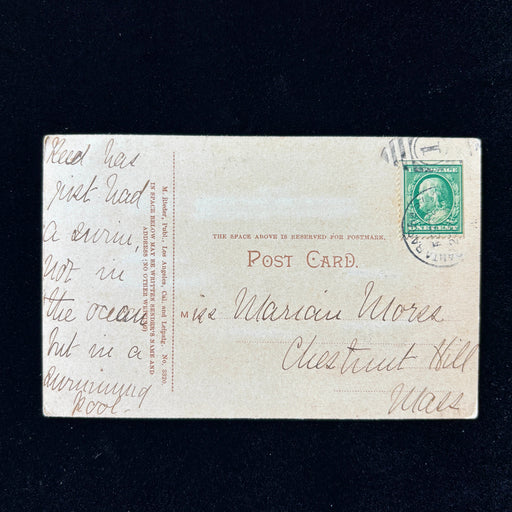 Reed has
just had
a swim,
not in
the ocean
but in a
swimming
pool.
M. Rieder, Publ., Los Angeles, Cal. and Leipzig. No. 3220.
IN SPACE BELOW MAY BE WRITTEN SENDER'S NAME AND
ADDRESS (NO OTHER WRITING)
THE SPACE ABOVE IS RESERVED FOR POSTMARK.
POST CARD.
Miss Marian Morse
Chestnut Hill
Mass
1
ONE CENT
SANTA BAR